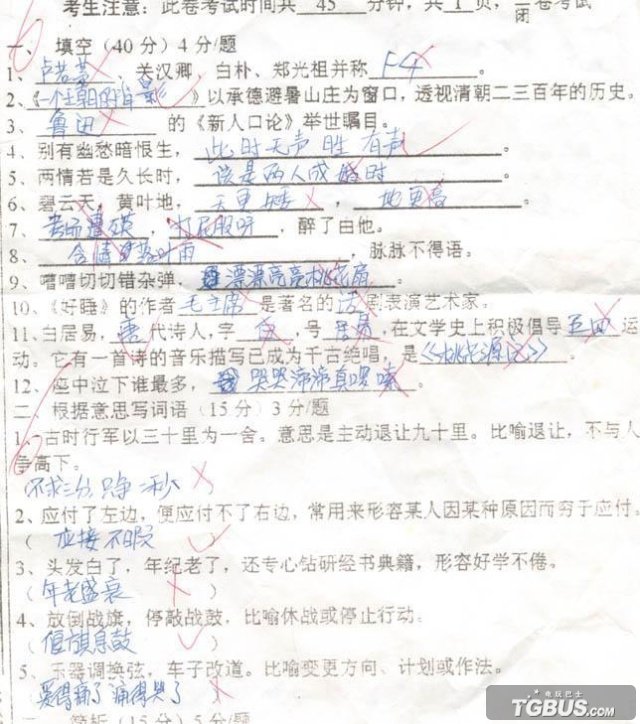 考生注意:此卷考试时间共 45 分钟,共 1 页,闭卷考试
一、填空(40分)4分/题
1、卢若募,关汉卿、白朴、郑光祖并称 F4 。
2、《一个王朝的背影》以承德避暑山庄为窗口,透视清朝二三百年的历史。
3、鲁迅 的《新人口论》举世瞩目。
4、别有幽愁暗恨生, 此时无声胜有声 。
5、两情若是久长时, 该是两人成婚时 。
6、碧云天,黄叶地, 天更矮 , 地更高 。
7、考场遭殃,打屁股呀,醉了由他。
8、含情 叶雨 ,脉脉不得语。
9、嘈嘈切切错杂弹, 漂漂亮亮桃花扇 。
10、《好睡》的作者 毛主席 是著名的 话 剧表演艺术家。
11、白居易,唐 代诗人,字 ,号 居易 ,在文学史上积极倡导 五四 运
动。它有一首诗的音乐描写已成为千古绝唱,是《桃花源记》 。
12、座中泣下谁最多, 哭哭沸沸真啰嗦 。
二、根据意思写词语(15分)3分/题
1、古时行军以三十里为一舍。意思是主动退让九十里。比喻退让,不与人
争高下。
(不求三分,只争一秒 )
2、应付了左边,便应付不了右边,常用来形容某人因某种原因而穷于应付。
( 应接不暇 )
3、头发白了,年纪老了,还专心钻研经书典籍,形容好学不倦。
( 年老盛衰 )
4、放倒战旗,停敲战鼓,比喻休战或停止行动。
( 偃旗息鼓 )
5、乐器调换弦,车子改道。比喻变更方向、计划或作法。
爱得痛了 痛得哭了 )
简析(15分)5分/题
电玩巴士
TGBUS.com